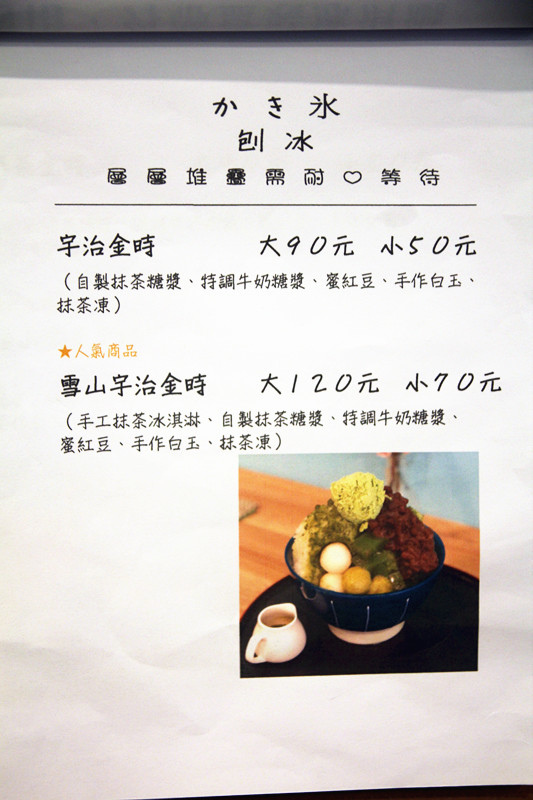 かき氷
刨冰
層層堆疊需耐♡等待
宇治金時 大90元 小50元
（自製抹茶糖漿、特調牛奶糖漿、蜜紅豆、手作白玉、
抹茶凍）
★人氣商品
雪山宇治金時 大120元 小70元
（手工抹茶冰淇淋、自製抹茶糖漿、特調牛奶糖漿、
蜜紅豆、手作白玉、抹茶凍）